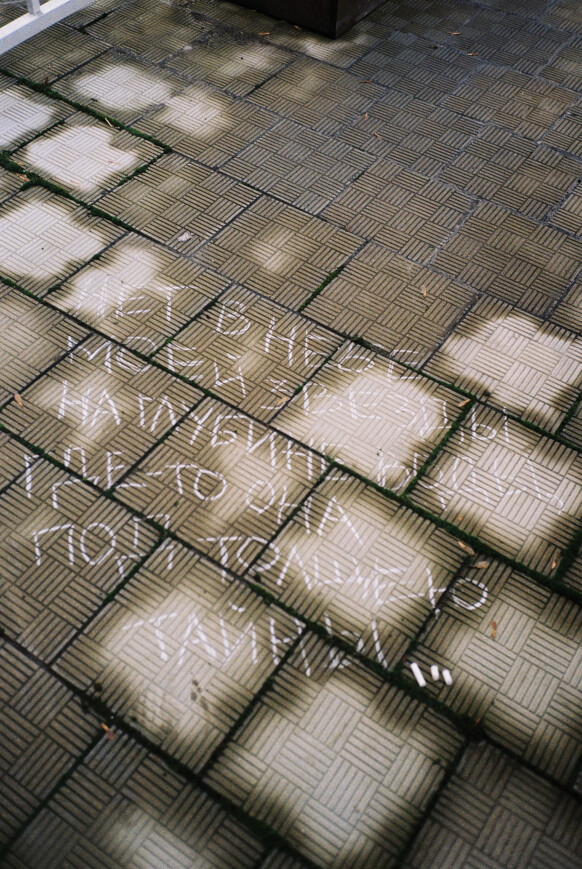 НЕТ В НЕБЕ
МОЕЙ ЗВЕЗДЫ
НА ГЛУБИНЕ
ГДЕ-ТО ОНА
ПОД ТОЛЩЕЮ
ТАЙНЫ